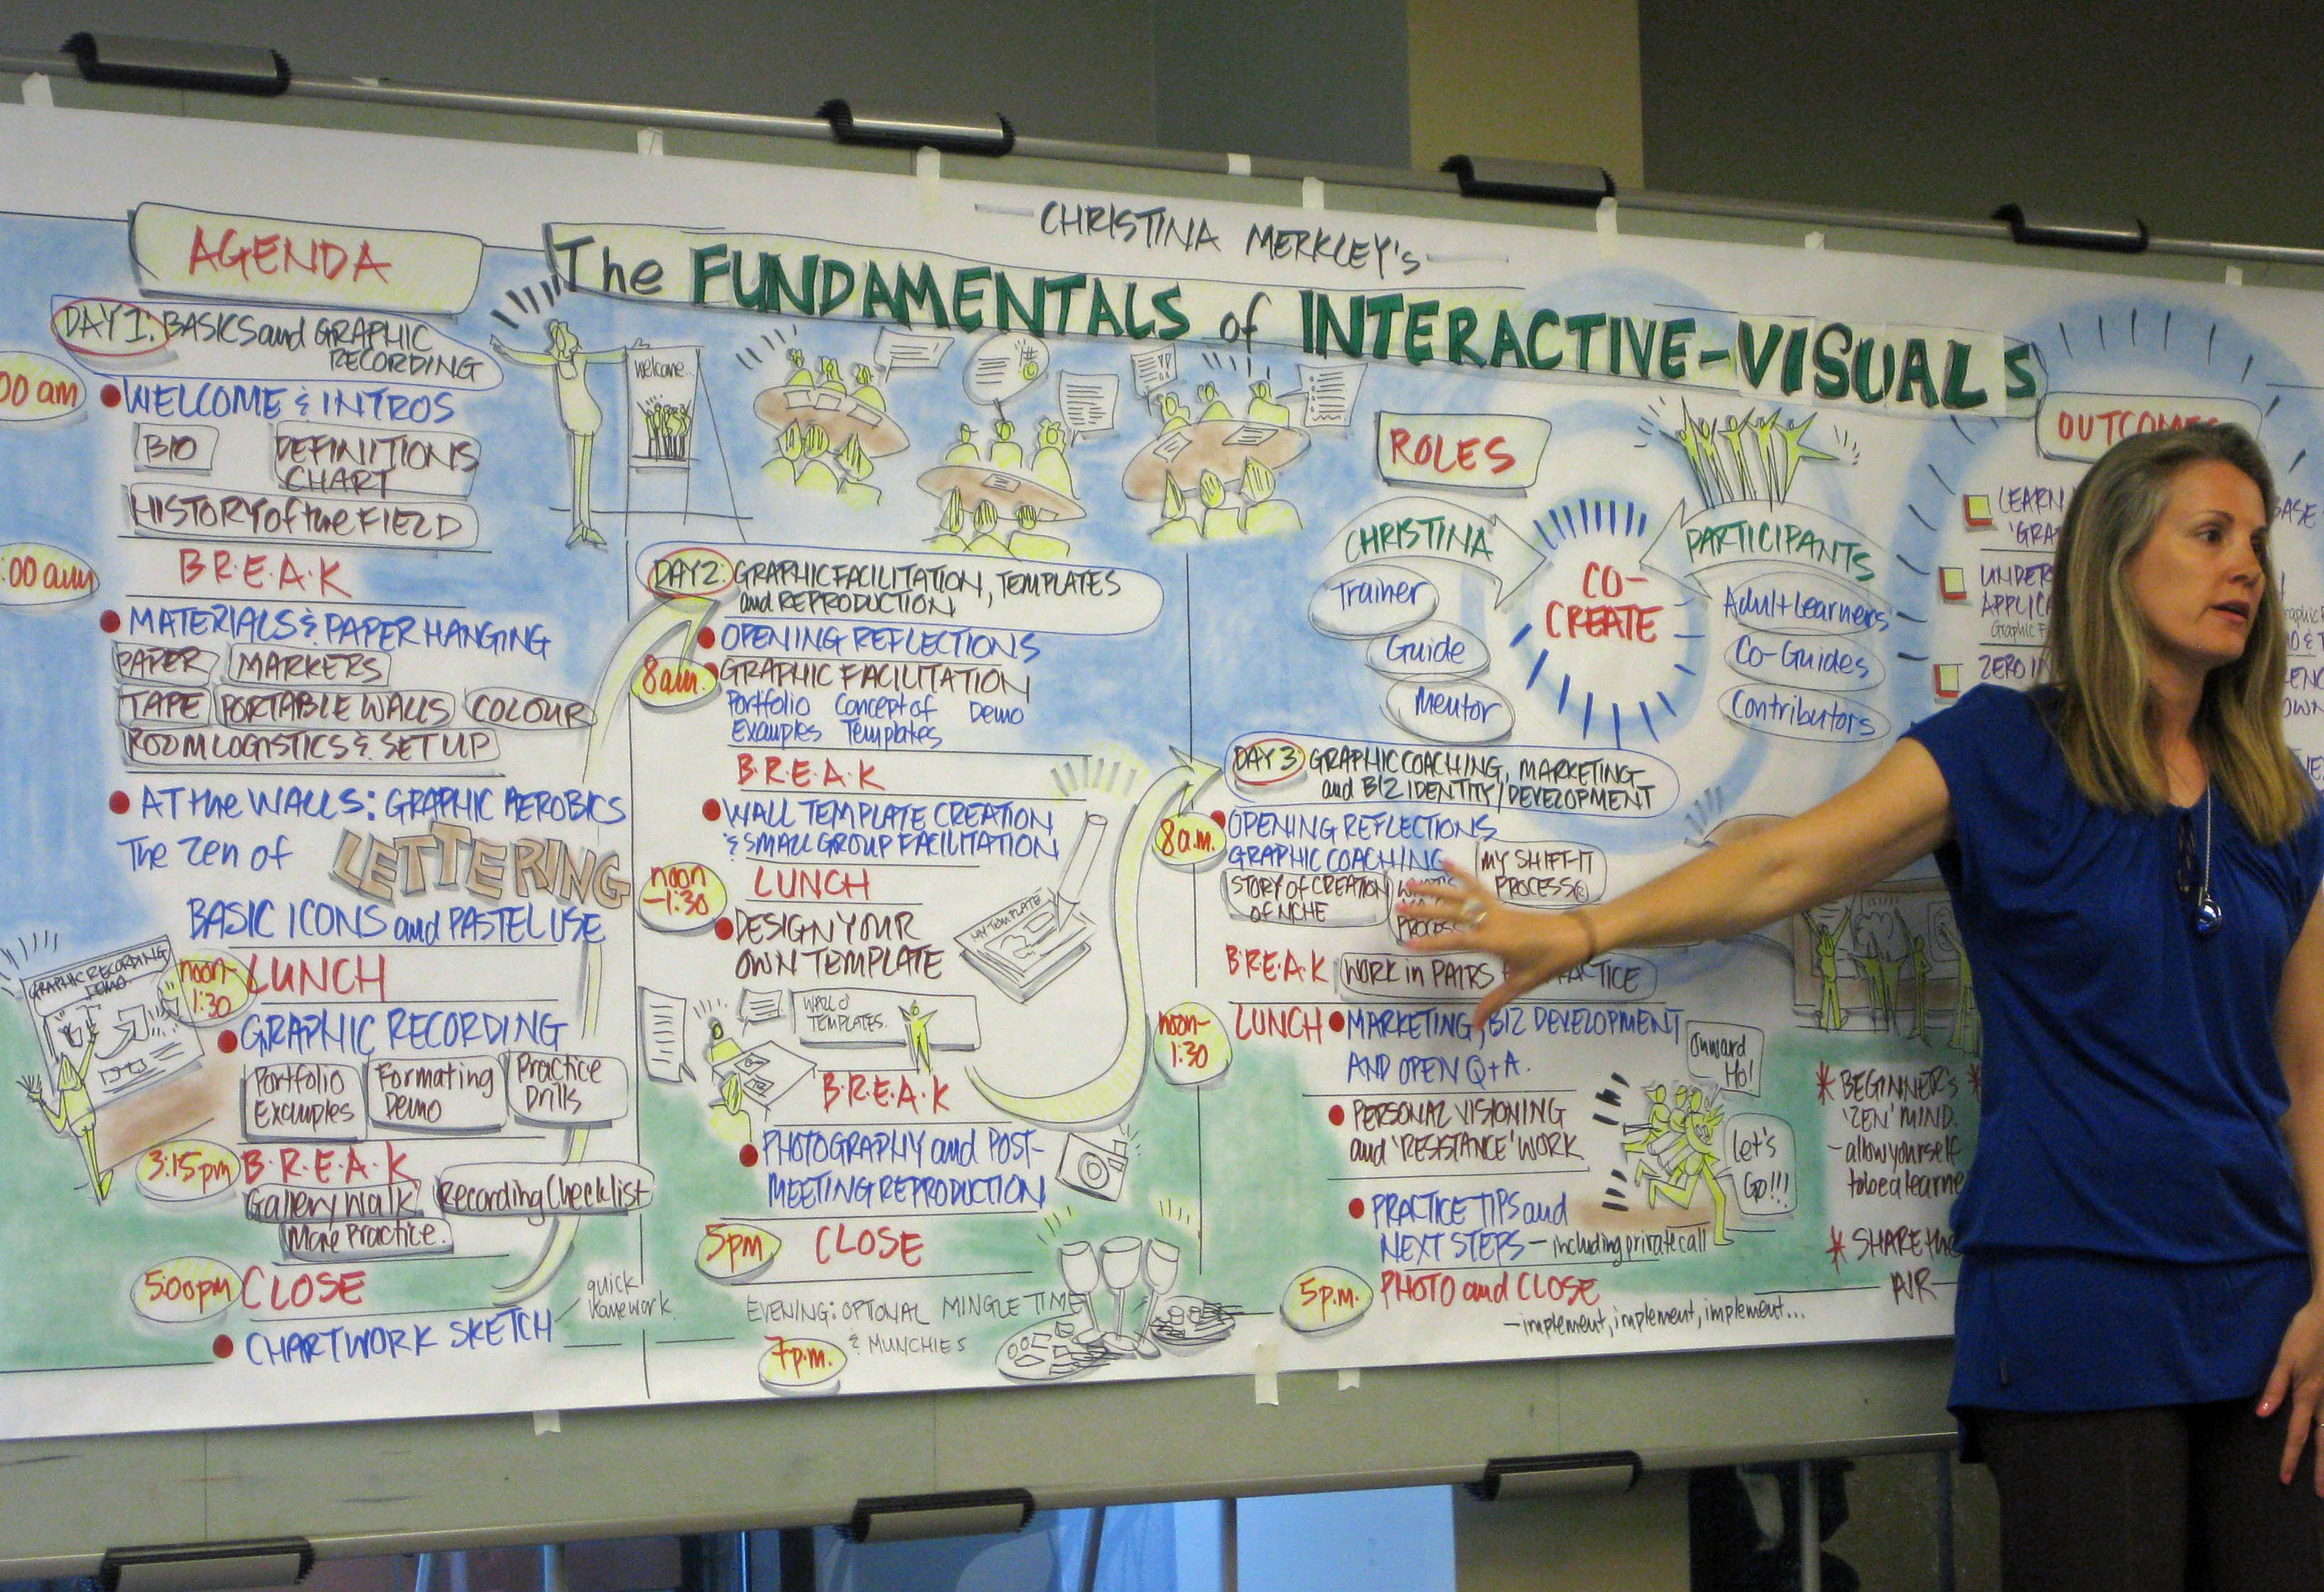 CHRISTINA MERKLEY'S
The FUNDAMENTALS of INTERACTIVE-VISUALS
AGENDA
DAY 1: BASICS and GRAPHIC
RECORDING
00 am
WELCOME & INTROS
BIO
DEFINITIONS
CHART
HISTORY of the FIELD
:00 am
B·R·E·A·K
MATERIALS & PAPER HANGING
PAPER MARKERS
TAPE PORTABLE WALLS COLOUR
ROOM LOGISTICS & SET UP
AT the WALLS: GRAPHIC AEROBICS
The Zen of LETTERING
BASIC ICONS and PASTEL USE
GRAPHIC RECORDING
DEMO
noon-
1:30
LUNCH
GRAPHIC RECORDING
Portfolio
Examples
Formating
Demo
Practice
Drills
3:15pm B·R·E·A·K
Gallery Walk Recording Checklist
More Practice.
5:00pm CLOSE
CHARTWORK SKETCH
quick
homework
Welcome...
DAY 2: GRAPHIC FACILITATION, TEMPLATES
and REPRODUCTION
OPENING REFLECTIONS
8am. GRAPHIC FACILITATION
Portfolio Concept of Demo
Examples Templates
B·R·E·A·K
WALL TEMPLATE CREATION
& SMALL GROUP FACILITATION
noon
-1:30
LUNCH
DESIGN YOUR
OWN TEMPLATE
MY TEMPLATE
WALL O'
TEMPLATES.
B·R·E·A·K
PHOTOGRAPHY and POST-
MEETING REPRODUCTION
5pm CLOSE
EVENING: OPTIONAL MINGLE TIME
& MUNCHIES
7p.m.
ROLES
CHRISTINA
Trainer
Guide
Mentor
CO-
CREATE
PARTICIPANTS
Adult Learners
Co-Guides
Contributors
DAY 3: GRAPHIC COACHING, MARKETING
and BIZ IDENTITY/DEVELOPMENT
8a.m. OPENING REFLECTIONS
GRAPHIC COACHING
STORY of CREATION
of NICHE
MY SHIFT-IT
PROCESS©
B·R·E·A·K WORK in PAIRS
noon-
1:30
LUNCH MARKETING, BIZ DEVELOPMENT
AND OPEN Q+A.
PERSONAL VISIONING
and 'RESISTANCE' WORK
Onward
Ho!
Let's
Go!!!
PRACTICE TIPS and
NEXT STEPS - including private call
5p.m. PHOTO and CLOSE
-implement, implement, implement...
OUTCOMES
LEARN
'GRA
UNDER
APPLICA
Graphic F
ZERO IN
BEGINNER'S
'ZEN' MIND.
- allow yourself
to be a learne
SHARE the
AIR-